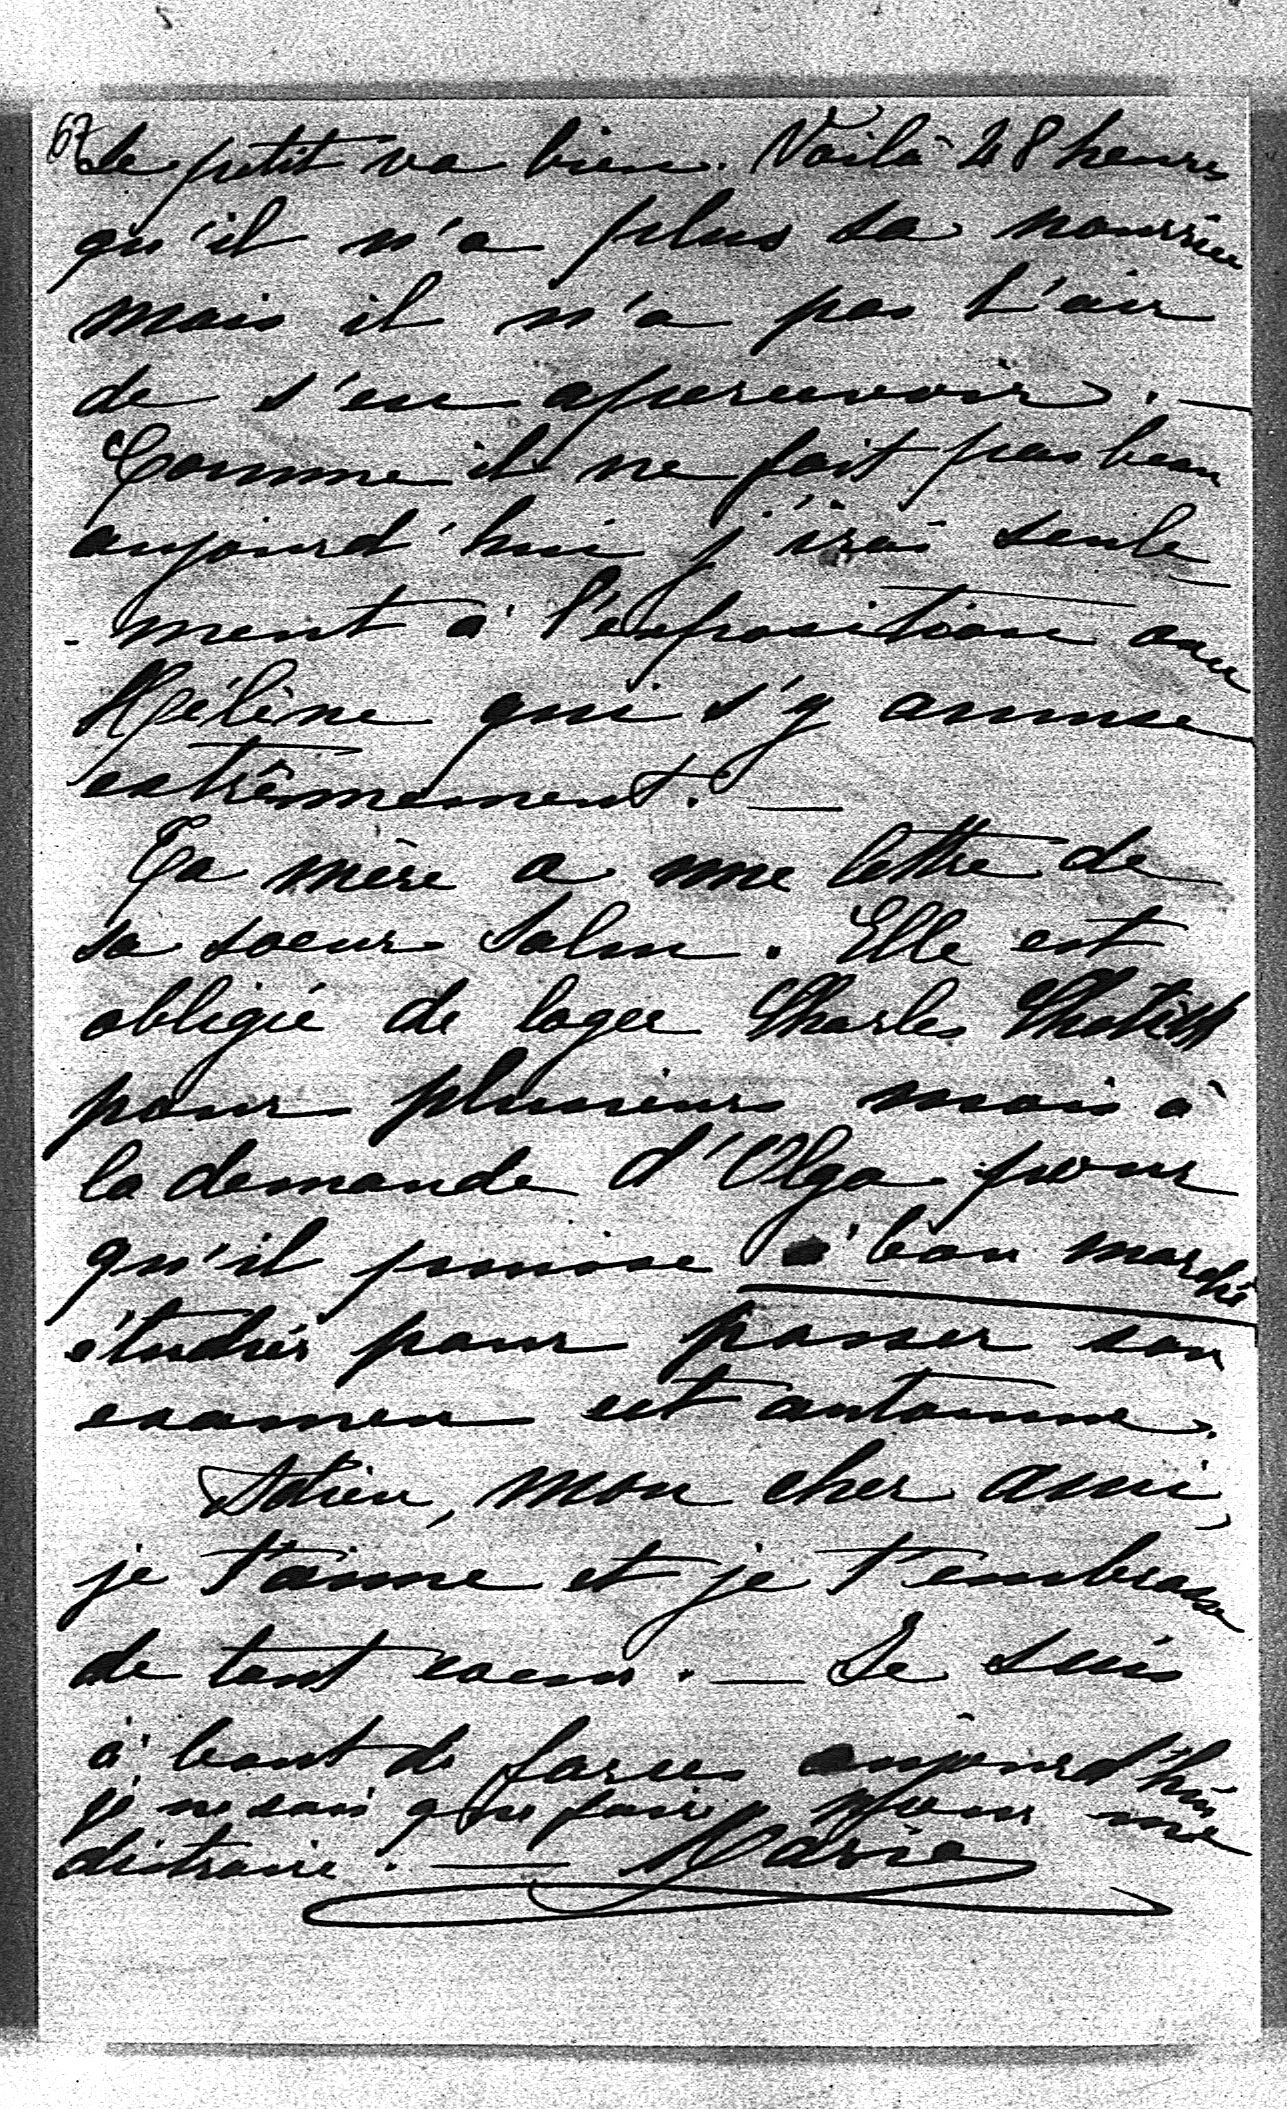 67
Le petit va bien. Voilà 48 heures
qu'il n'a plus sa nourrice
mais il n'a pas l'air
de s'en apercevoir. —
Comme il ne fait pas beau
aujourd'hui j'irai seule
- ment à l'exposition avec
Hélène qui s'y amuse
extrêmement. —
Ta mère a une lettre de
sa soeur Salm. Elle est
obligée de loger Charles
pour plusieurs mois à
la demande d'Olga pour
qu'il puisse à bon marché
étudier pour passer son
examen cet automne.
Adieu, mon cher ami,
je t'aime et je t'embrasse
de tout coeur. — Je suis
à bout de forces aujourd'hui
je ne sais que faire pour me
distraire. — Marie